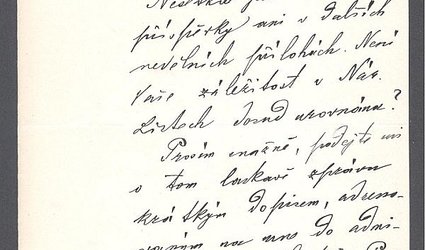 příspěvky ani v dalších
nedělních přílohách. Není
Vaše záležitost v Nár.
Listech dosud urovnána?
Prosím snažně, podejte mi
o tom laskavě zprávu
krátkým dopisem, adreso-
vaným na mne do admi-